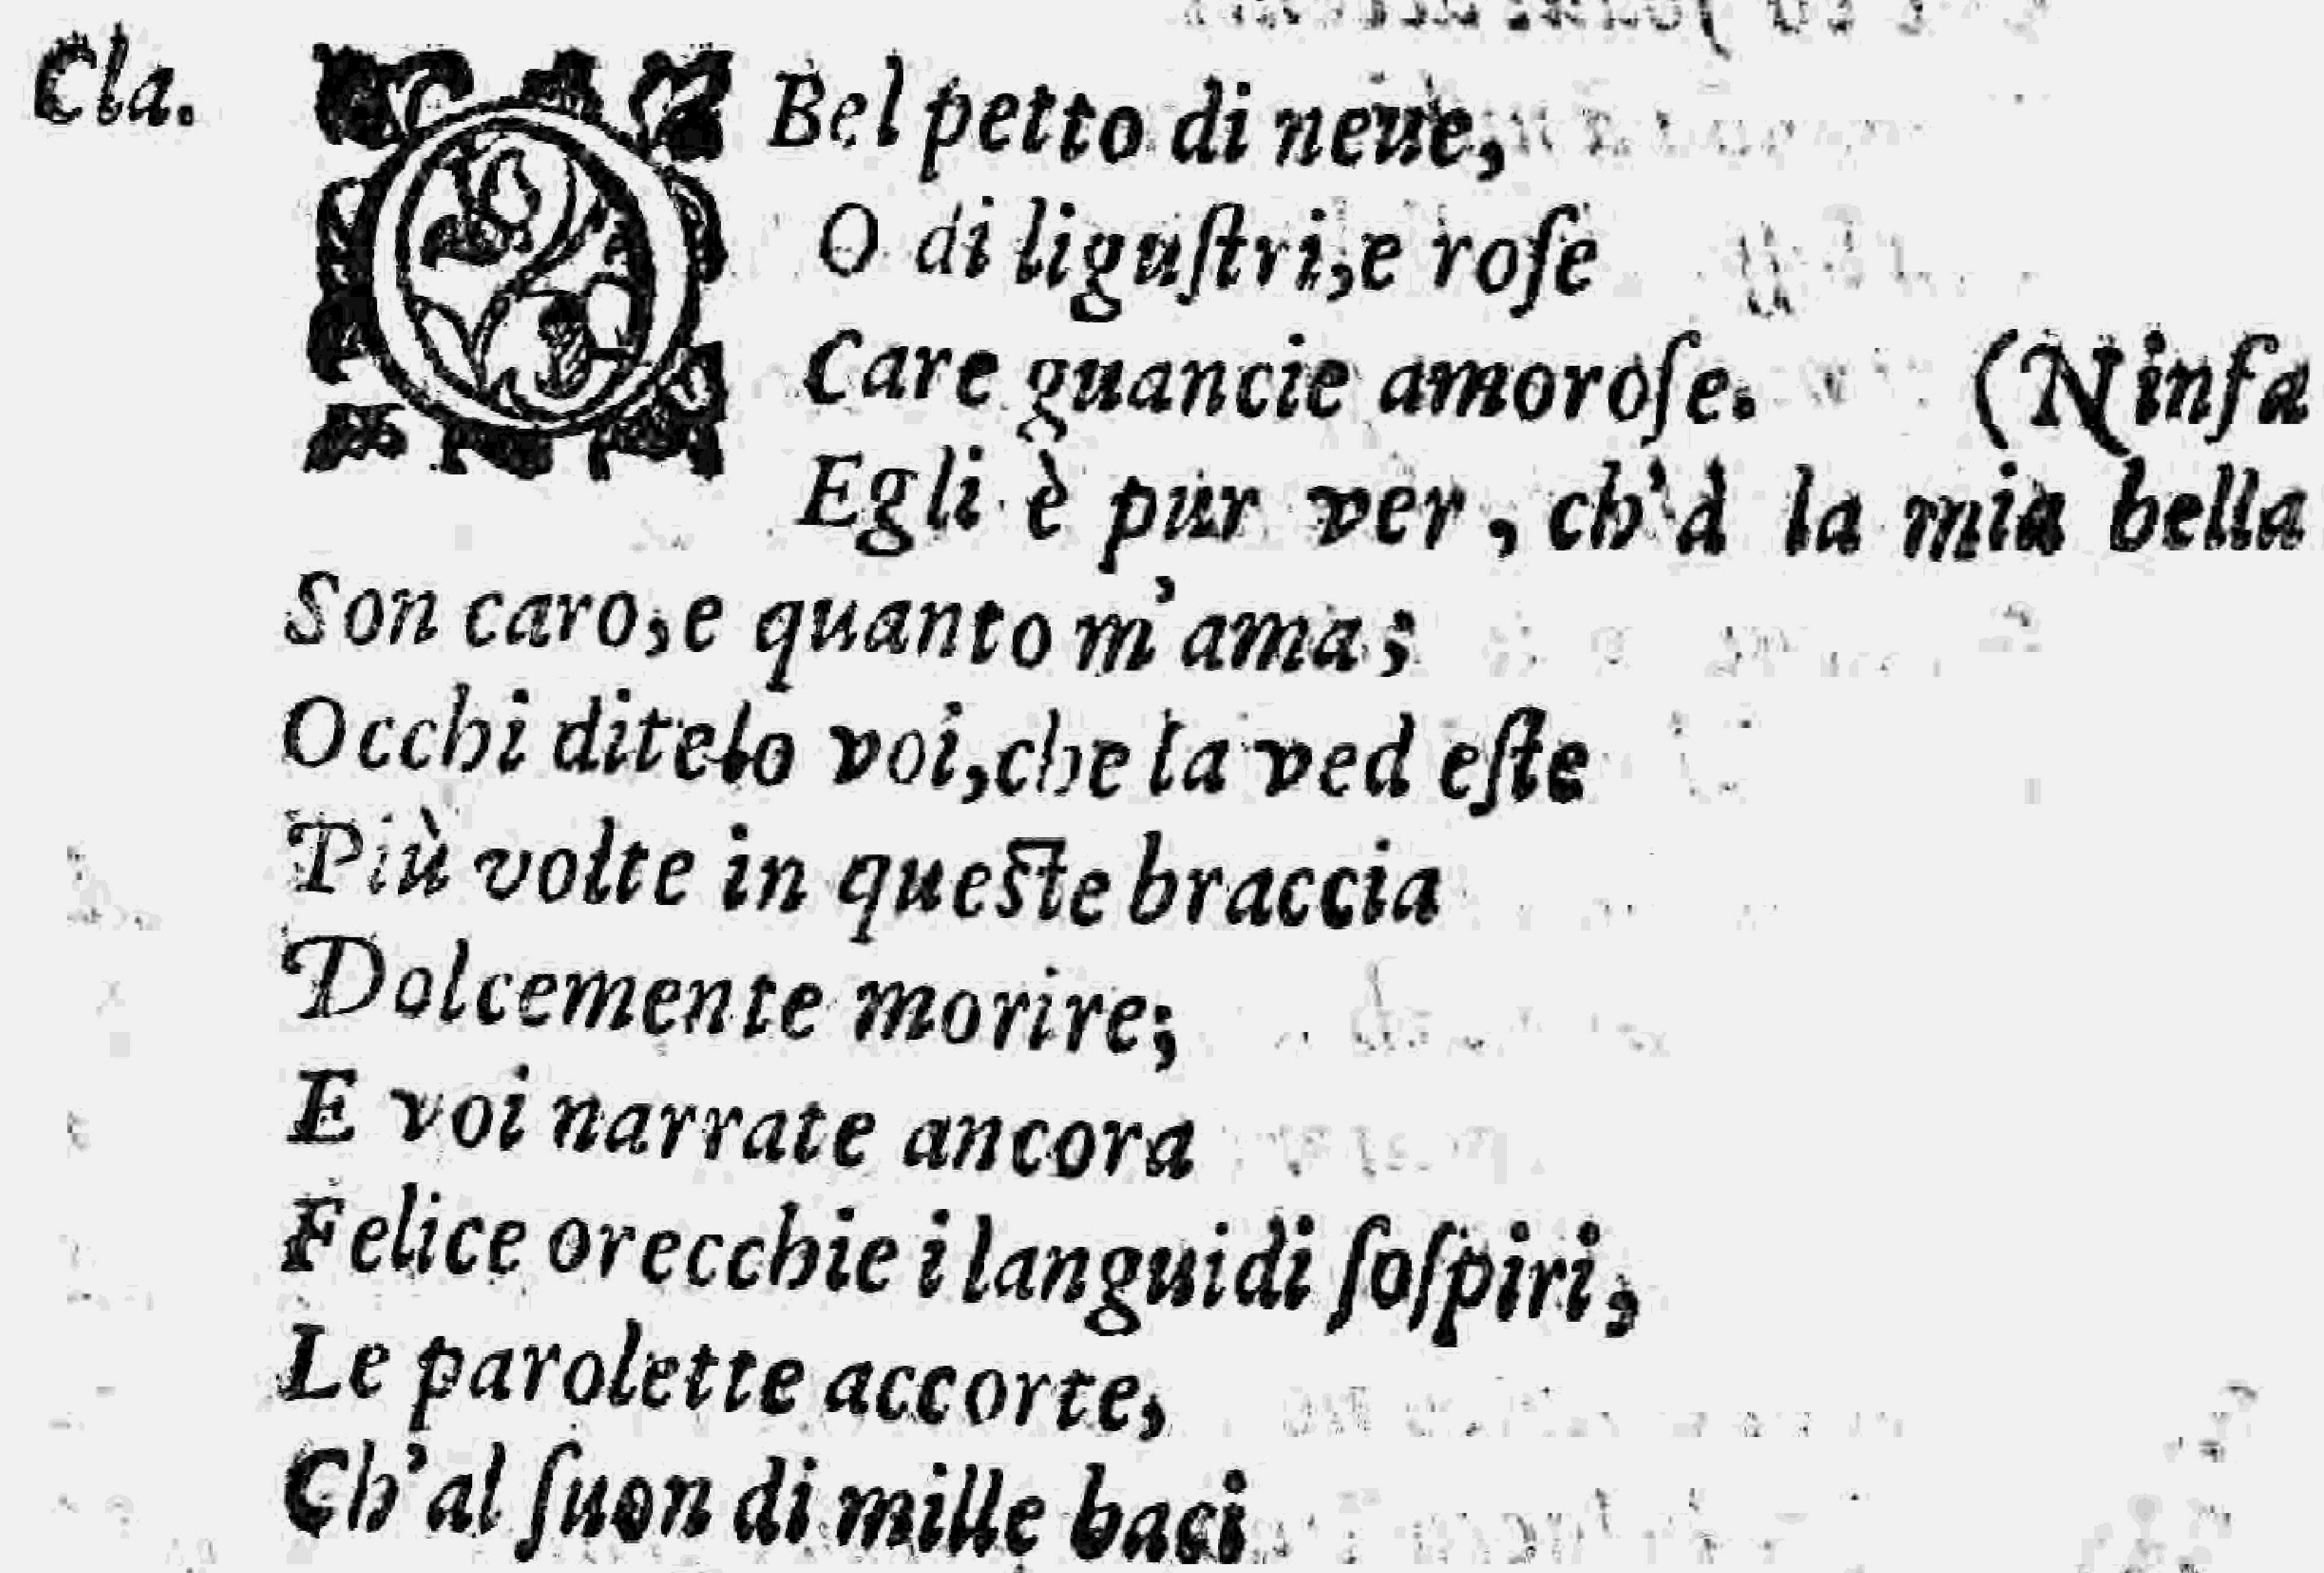 Cla. O Bel petto di neue,
O di liguſtri, e roſe
Care guancie amoroſe. (Ninfa
Egli è pur ver, ch'à la mia bella
Son caro, e quanto m'ama;
Occhi ditelo voi, che la ved eſte
Più volte in queſte braccia
Dolcemente morire;
E voi narrate ancora
Felice orecchie i languidi ſoſpiri,
Le parolette accorte,
Ch'al ſuon di mille baci